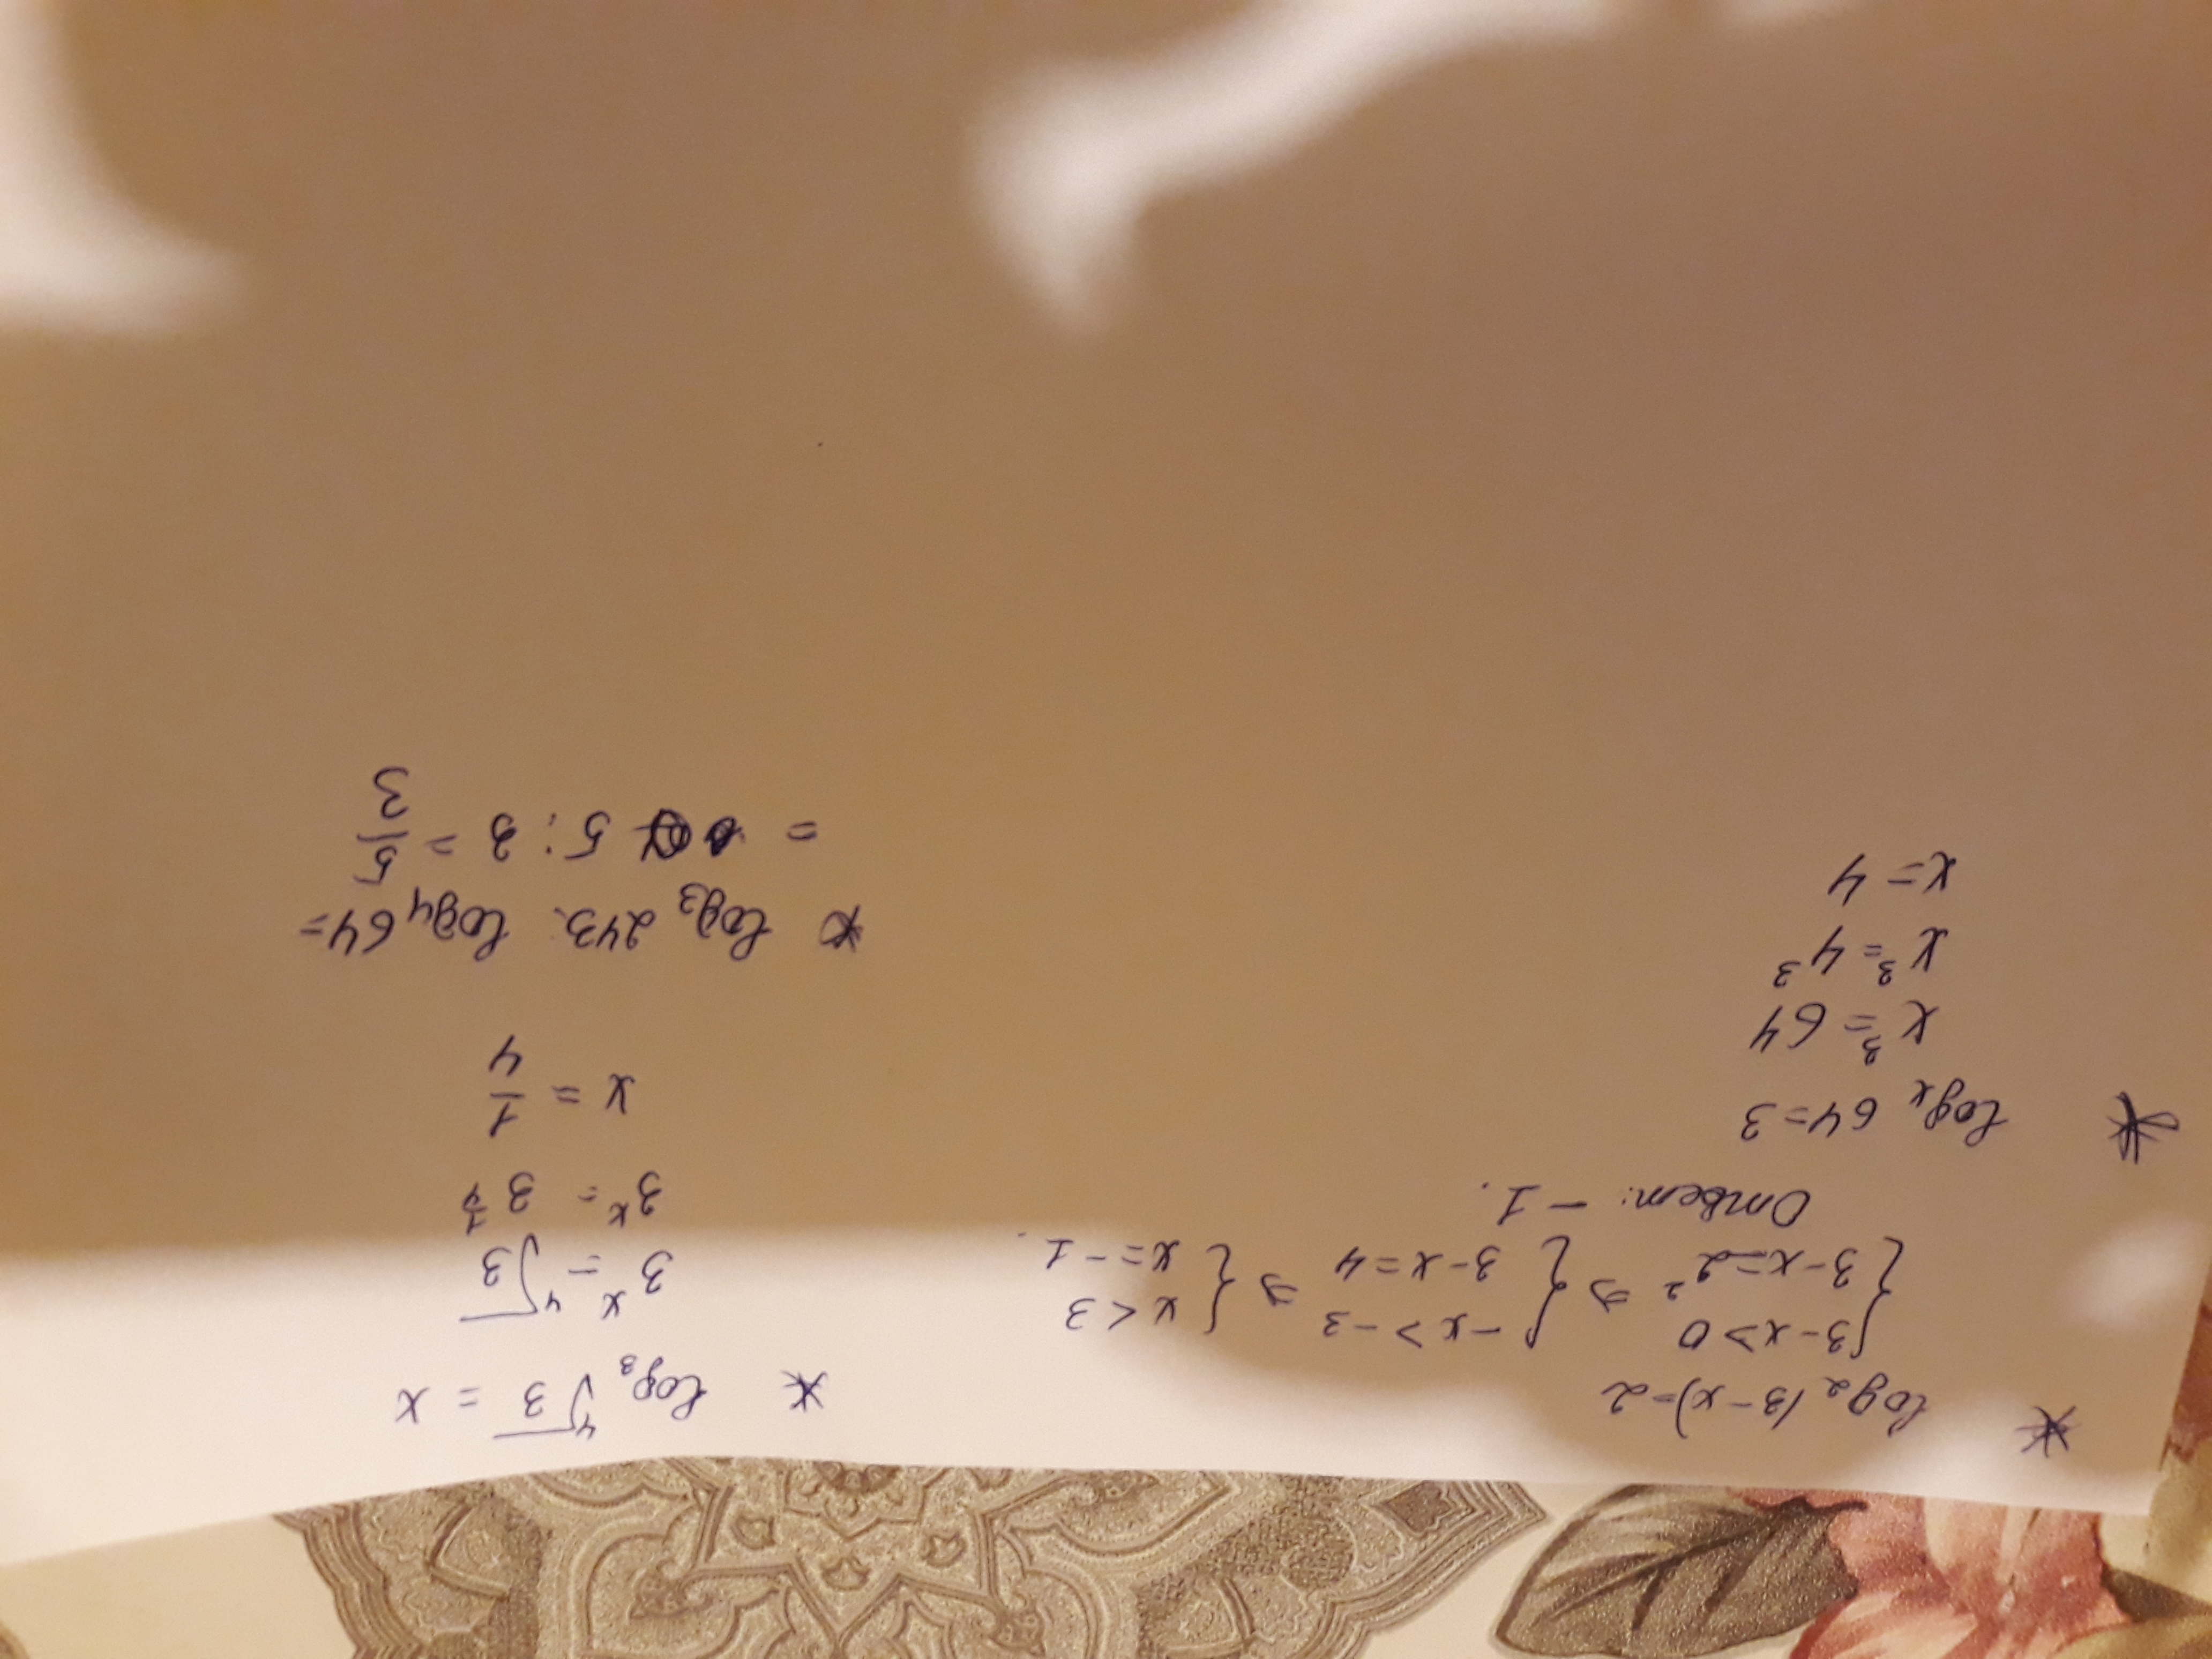 * log₂(3-x)=2
{3-x>0 ⇒ {-x>-3 ⇒ {x<3
{3-x=2² ⇒ {3-x=4 ⇒ {x=-1.
Ответ: -1.
* logₓ 64=3
x³=64
x³=4³
x=4
* log₃ ⁴√3 = x
3ˣ = ⁴√3
3ˣ = 3^(1/4)
x = 1/4
* log₃ 243 : log₄ 64 =
= 5 : 3 = 5/3